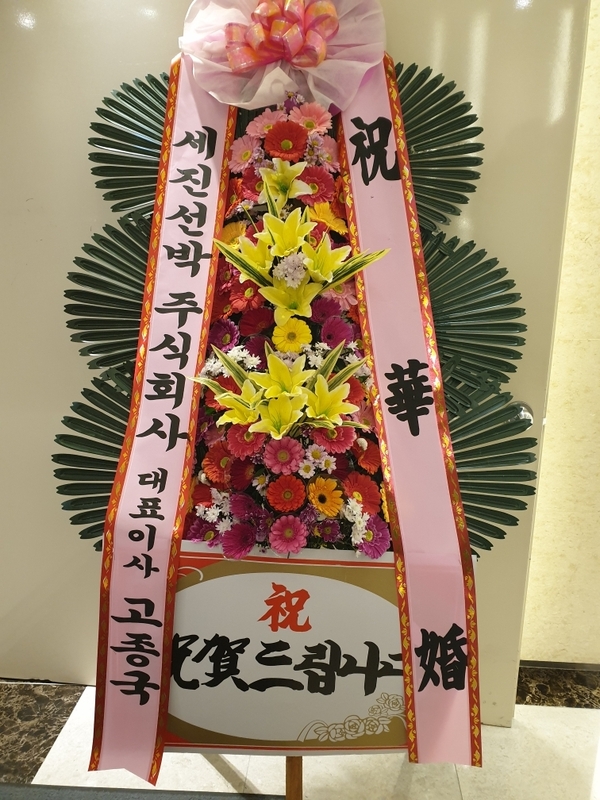 세진선박 주식회사 대표이사 고종국
祝 華 婚
祝
祝賀드립니다